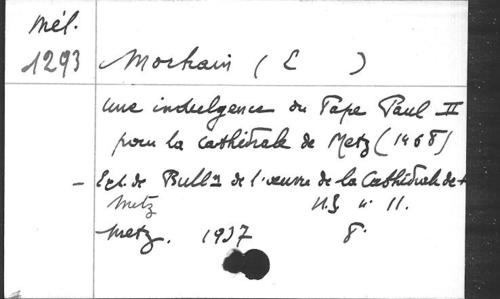 Mél.
1293 Morhain (E )
une indulgence du Pape Paul II
pour la cathédrale de Metz (1468)
- Ext. de Bull de l'œuvre de la Cathédrale de
Metz N.S n° 11.
Metz. 1937 8°